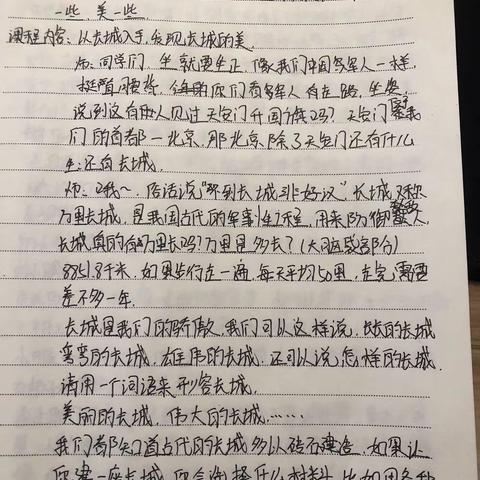 一些，美一些
课程内容：从长城入手，发现长城的美。
师：同学们，坐就要坐正，像我们中国军人一样，
挺直腰背，我们有军人在走路、坐姿，
说到这有哪人见过天安门升国旗吗？天安门是我
们的首都—北京，那北京除了天安门还有什么
生：还有长城。
师：哦～，俗话说“不到长城非好汉”长城，又称
万里长城，是我国古代的军事工程，用来防御敌人，
长城真的有万里长吗？万里是多长？（大脑感官部分）
8851.8千米，如果步行走一遍，每天平均50里，走完需要
差不多一年。
长城是我们的骄傲，我们可以这样说，长长的长城
弯弯的长城，雄伟的长城，还可以说怎样的长城，
请用一个词语来形容长城。
美丽的长城，伟大的长城，……
我们都知道古代的长城多以砖石建造，如果让
你建一座长城，你会选择什么材料，比如用各种